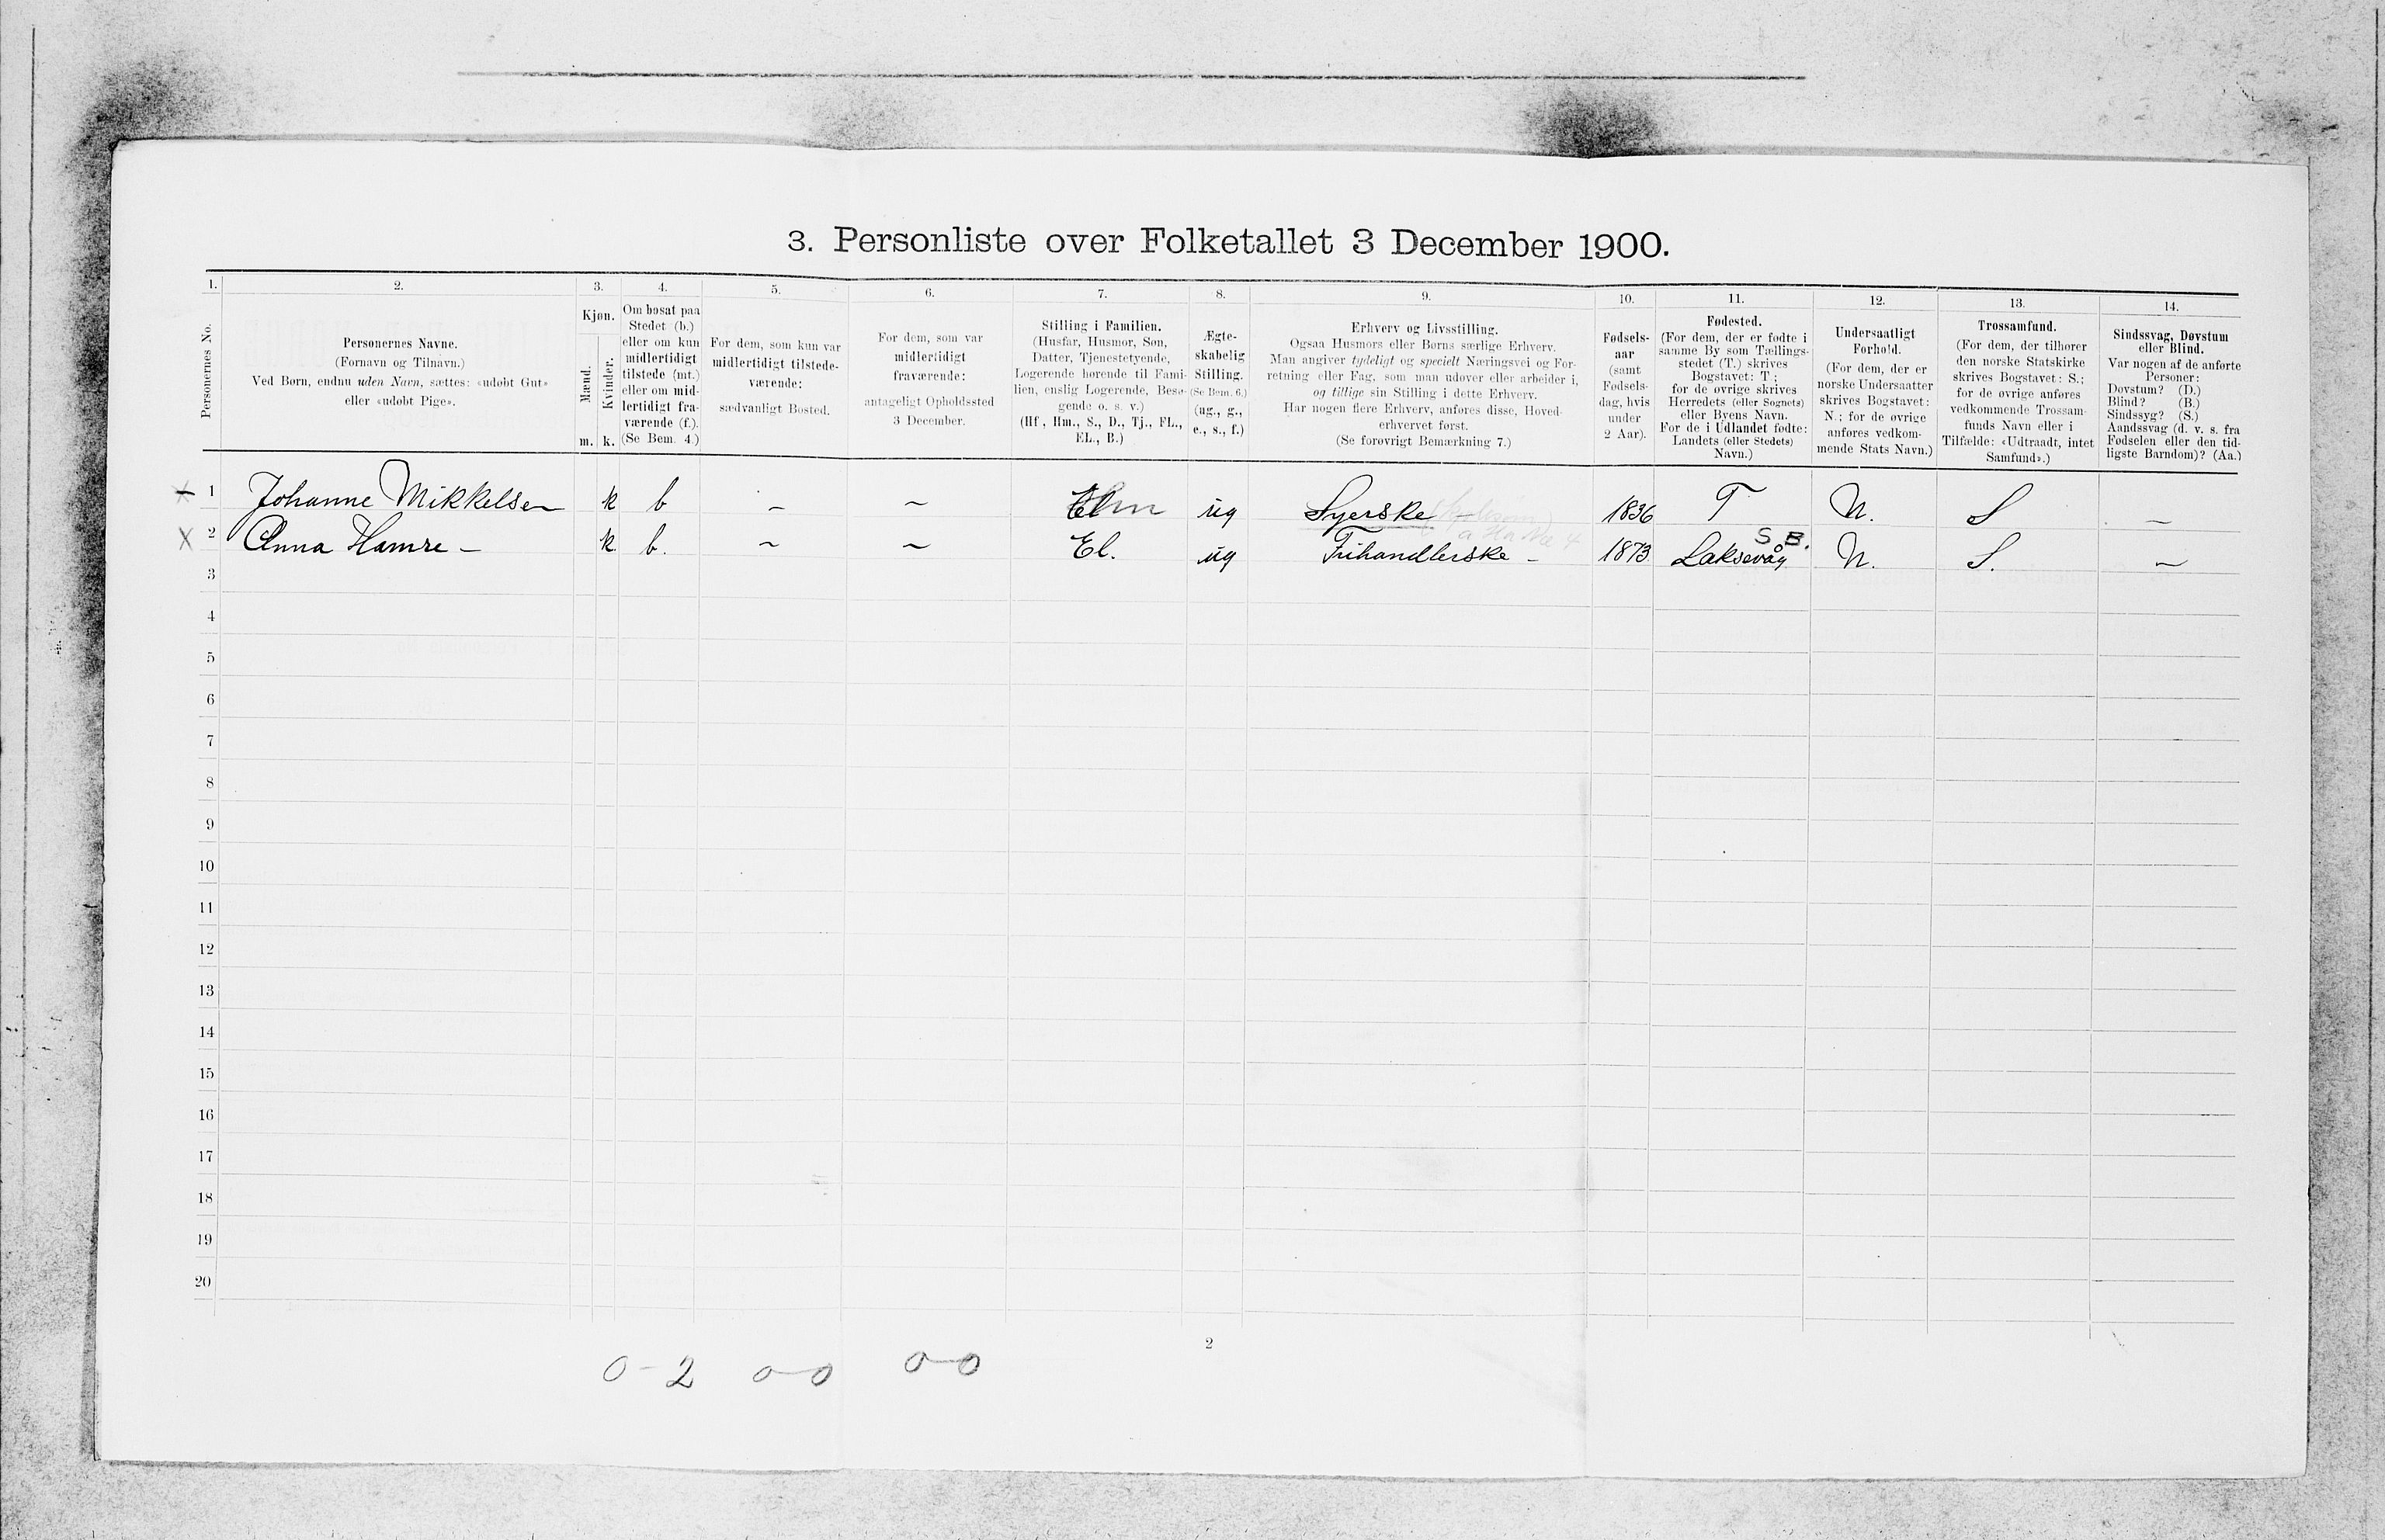 3. Personliste over Folketallet 3 December 1900.
1. 2. 3. 4. 5. 6. 7. 8. 9. 10. 11. 12. 13. 14.
Personernes No.
Personernes Navne.
(Fornavn og Tilnavn.)
Ved Børn, endnu uden Navn, sættes: «udøbt Gut»
eller «udøbt Pige».
Kjøn.
Mænd.
Kvinder.
m. k.
Om bosat paa
Stedet (b.)
eller om kun
midlertidigt
tilstede (mt.)
eller om mid-
lertidigt fra-
værende (f.).
(Se Bem. 4.)
For dem, som kun var
midlertidigt tilstede-
værende:
sædvanligt Bosted.
For dem, som var
midlertidigt
fraværende:
antageligt Opholdssted
3 December.
Stilling i Familien.
(Husfar, Husmor, Søn,
Datter, Tjenestetyende,
Logerende hørende til Fami-
lien, enslig Logerende, Besø-
gende o. s. v.)
(Hf., Hm., S., D., Tj., FL.,
EL., B.)
Ægte-
skabelig
Stilling.
(Se Bem. 6.)
(ug., g.,
e., s., f.)
Erhverv og Livsstilling.
Ogsaa Husmors eller Børns særlige Erhverv.
Man angiver tydeligt og specielt Næringsvei og For-
retning eller Fag, som man udøver eller arbeider i,
og tillige sin Stilling i dette Erhverv.
Har nogen flere Erhverv, anføres disse, Hoved-
erhvervet først.
(Se forøvrigt Bemærkning 7.)
Fødsels-
aar
(samt
Fødsels-
dag, hvis
under
2 Aar).
Fødested.
(For dem, der er fødte i
samme By som Tællings-
stedet (T.) skrives
Bogstavet: T.;
for de øvrige skrives
Herredets (eller Sognets)
eller Byens Navn.
For de i Udlandet fødte:
Landets (eller Stedets)
Navn.)
Undersaatligt
Forhold.
(For dem, der er
norske Undersaatter
skrives Bogstavet:
N.; for de øvrige
anføres vedkom-
mende Stats Navn.)
Trossamfund.
(For dem, der tilhører
den norske Statskirke
skrives Bogstavet: S.;
for de øvrige anføres
vedkommende Trossam-
funds Navn eller i
Tilfælde: «Udtraadt, intet
Samfund».)
Sindssvag, Døvstum
eller Blind.
Var nogen af de anførte
Personer:
Døvstum? (D.)
Blind? (B.)
Sindssyg? (S.)
Aandssvag (d. v. s. fra
Fødselen eller den tid-
ligste Barndom)? (Aa.)
1 Johanne Mikkelsen k b - ~ ug Syerske 1836 T N. S -
S. B.
X 2 Anna Hamre - k. b. ~ ~ El. ug Frihandlerske - 1873 Laksevåg N. S. ~
3
4
5
6
7
8
9
10
11
12
13
14
15
16
17
18
19
20
2
0-2 0-0 0-0